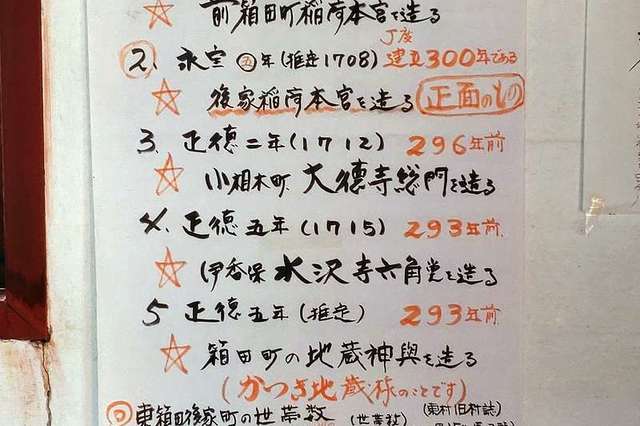 ☆ 前箱田町稲荷本宮を造る
丁度
2. 永宝㊄年(推定1708) 建立300年である
☆ 後家稲荷本宮を造る 正面のもの
3. 正徳二年(1712) 296年前
☆ 小相木町 大徳寺総門を造る
4. 正徳五年(1715) 293年前
☆ 伊香保 水沢寺六角堂を造る
5 正徳五年(推定) 293年前
☆ 箱田町の地蔵神輿を造る
(かつぎ地蔵様のことです)
東箱田後家町の世帯数 (世帯数) (東村旧村誌)